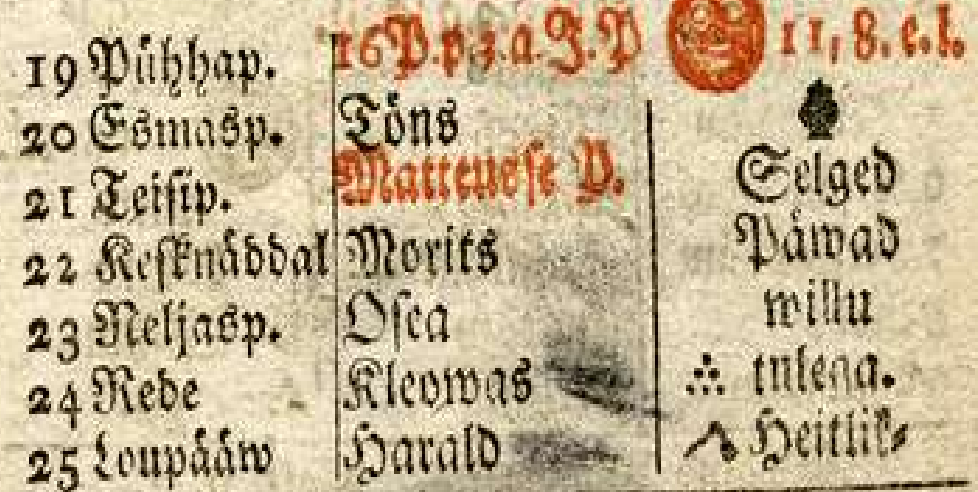 19 Pühhap. 16 P. p. 3. a. J. P 11, 8. e. l.
20 Esmasp. Töns
21 Teisip. Matteusse P. Selged
22 Kesknäddal Morits Päwad
23 Neljasp. Osea willu
24 Rede Kleowas tulega.
25 Loupääw Harald Heitlik⸗